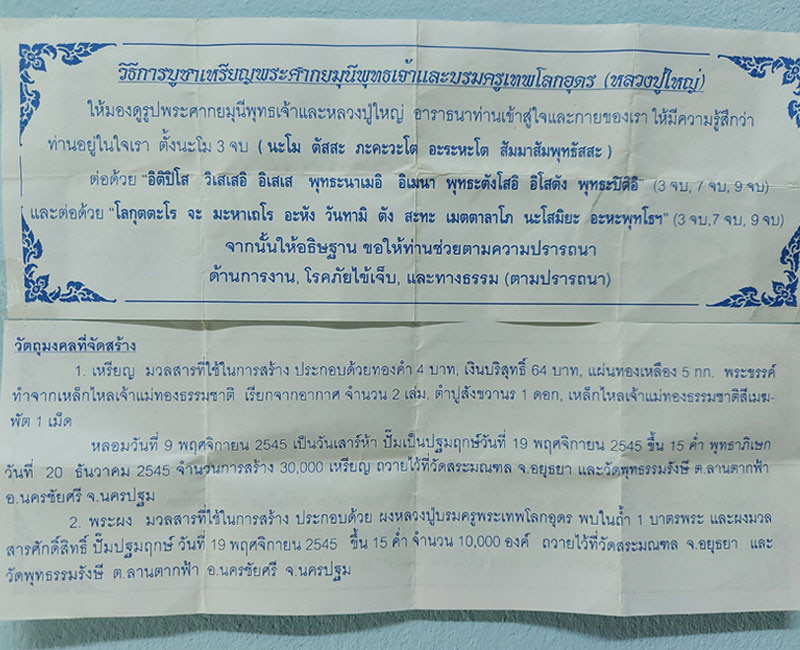 วิธีการบูชาเหรียญพระศากยมุนีพุทธเจ้าและบรมครูเทพโลกอุดร (หลวงปู่ใหญ่)
ให้มองดูรูปพระศากยมุนีพุทธเจ้าและหลวงปู่ใหญ่ อาราธนาท่านเข้าสู่ใจและกายของเรา ให้มีความรู้สึกว่า
ท่านอยู่ในใจเรา ตั้งนะโม 3 จบ ( นะโม ตัสสะ ภะคะวะโต อะระหะโต สัมมาสัมพุทธัสสะ )
ต่อด้วย "อิติปิโส วิเสเสอิ อิเสเส พุทธะนาเมอิ อิเมนา พุทธะตังโสอิ อิโสตัง พุทธะปิติอิ" (3 จบ, 7 จบ, 9 จบ)
และต่อด้วย "โลกุตตะโร จะ มะหาเถโร อะหัง วันทามิ ตัง สะทะ เมตตาลาโภ นะโสมิยะ อะหะพุทโธฯ" (3 จบ,7 จบ, 9 จบ)
จากนั้นให้อธิษฐาน ขอให้ท่านช่วยตามความปรารถนา
ด้านการงาน, โรคภัยไข้เจ็บ, และทางธรรม (ตามปรารถนา)
วัตถุมงคลที่จัดสร้าง
1. เหรียญ มวลสารที่ใช้ในการสร้าง ประกอบด้วยทองคำ 4 บาท, เงินบริสุทธิ์ 64 บาท, แผ่นทองเหลือง 5 กก. พระขรรค์
ทำจากเหล็กไหลเจ้าแม่ทองธรรมชาติ เรียกจากอากาศ จำนวน 2 เล่ม, ตำปูสังขวานร 1 ดอก, เหล็กไหลเจ้าแม่ทองธรรมชาติสีเมฆ-
พัต 1 เม็ด
หลอมวันที่ 9 พฤศจิกายน 2545 เป็นวันเสาร์ห้า ปั๊มเป็นปฐมฤกษ์วันที่ 19 พฤศจิกายน 2545 ขึ้น 15 ค่ำ พุทธาภิเษก
วันที่ 20 ธันวาคม 2545 จำนวนการสร้าง 30,000 เหรียญ ถวายไว้ที่วัดสระมณฑล จ.อยุธยา และวัดพุทธธรรมรังษี ต.ลานตากฟ้า
อ.นครชัยศรี จ.นครปฐม
2. พระผง มวลสารที่ใช้ในการสร้าง ประกอบด้วย ผงหลวงปู่บรมครูพระเทพโลกอุดร พบในถ้ำ 1 บาตรพระ และผงมวล
สารศักดิ์สิทธิ์ ปั๊มปฐมฤกษ์ วันที่ 19 พฤศจิกายน 2545 ขึ้น 15 ค่ำ จำนวน 10,000 องค์ ถวายไว้ที่วัดสระมณฑล จ.อยุธยา และ
วัดพุทธธรรมรังษี ต.ลานตากฟ้า อ.นครชัยศรี จ.นครปฐม